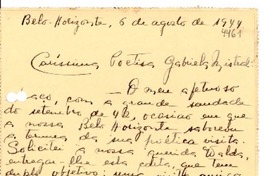 Belo-Horizonte, 6 de agosto de 1944
4461
Caríssima Poetisa Gabriela Mistral:
O meu afetuoso
com a grande saudade
de setembro de 42, ocasião em que
a nossa Belo Horizonte
a da sua poética visita.
Solicitei a nossa querida
entregar-lhe esta, que tem
duplo objetivo: uma visita